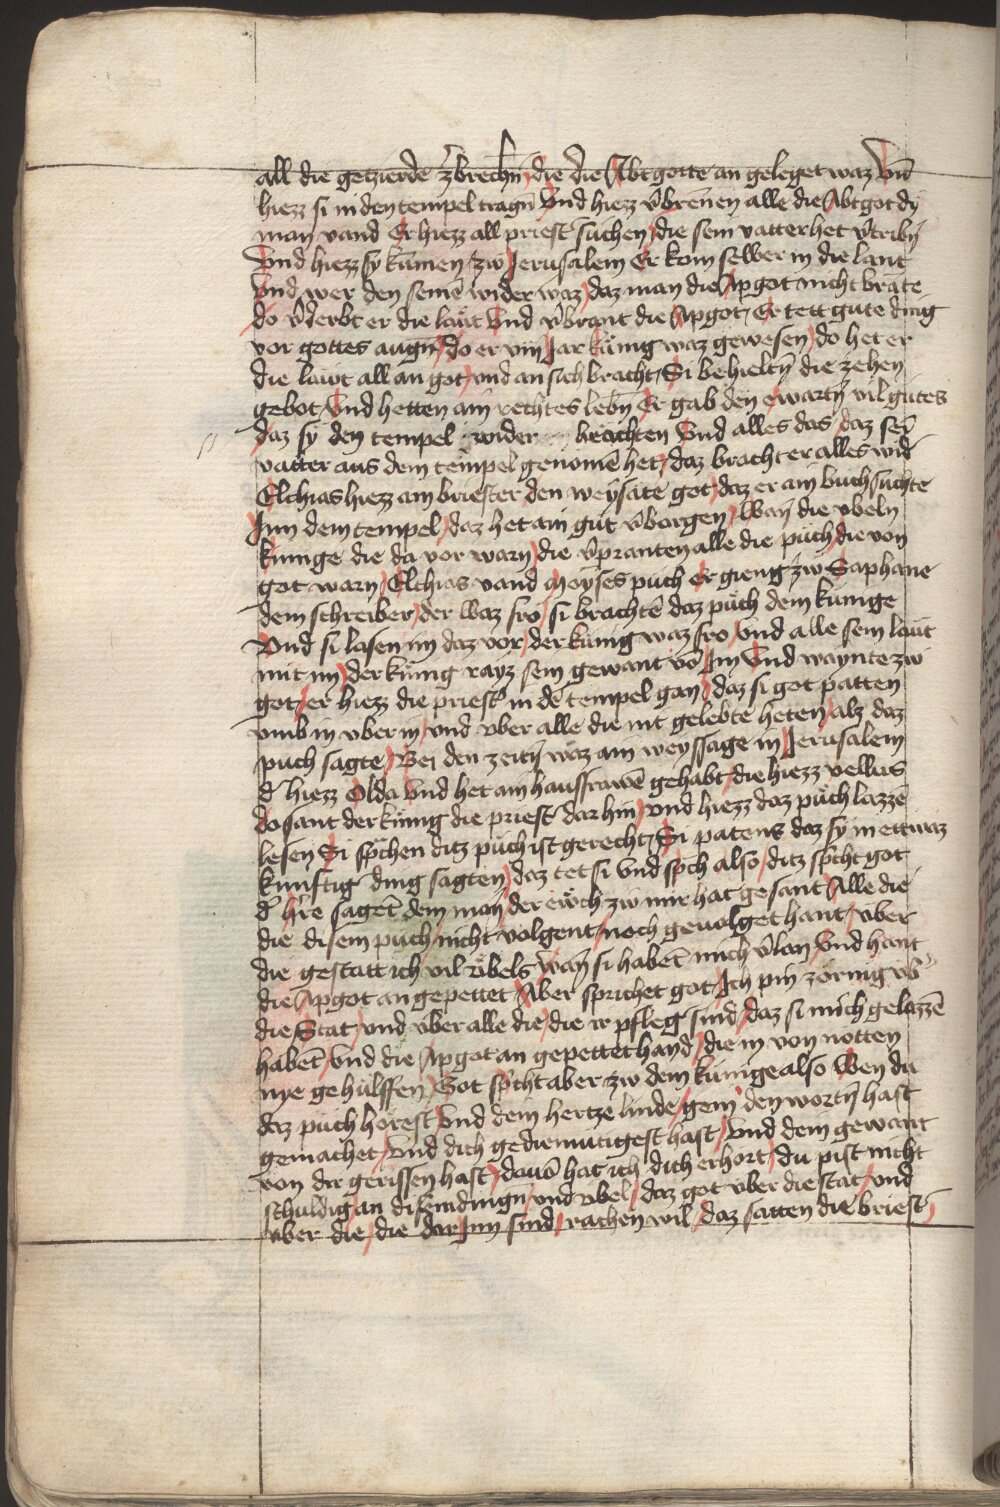 all die getzierde zˀbrechn̄ die die Abtgotte an geleget waz Vn̄
hiezz si in den tempel tragn̄ Vnd hiezz v̓brēnen alle die Abtgot dy
man vand Er hiezz all priest̓ suchen die sein vatter het v̓tribn̄
Vnd hiezz sy kumen zw Jerusalem Er kom selber in die lant
Vnd wer den seinē wider waz daz man die Apgot nicht brāte
do v̓derbt er die laut Vnd v̓brant die Apgot Er tett gute ding
vor gottes augn̄ do er viij Jar kunig waz gewesen do het er
die lawt all an got vnd an sich bracht Si behieltn̄ die zehen
gebot Vnd hetten ain rechtes lebn̄ Er gab den ewartn̄ vil gutes
daz sy den tempel wider beachten Vnd alles das daz sein̄
vatter aus dem tempel genomē het daz bracht er alles wid̓
Elchias hiezz ain briester den weysāte got daz er ain buch suchte
Inn dem tempel daz het ain gut v̓borgen Wan̄ die vbeln
kunige die da vor warn die v̓pranten alle die puch die von
got warn Elchias vand Moyses puch er gieng zw Saphane
dem schreiber der waz fro si brachtē daz puch dem kunige
Vnd si lasen im daz vor der kunig waz fro vnd alle sein laut
mit im der kunig rayz sein gewant vō Im Vnd waynte zw
got er hiezz die priest̓ in dē tempel gan daz si got patten
vmb in vber in vnd vber alle die nit gelebte heten alz daz
puch sagte Bei den zeitn̄ waz ain weyssage in Jerusalem
d̓ hiezz Olda Vnd het ain haussrawē gehabt die hiezz vellus
do sant der kunig die priest̓ dar hin vnd hiezz daz puch lazzē
lesen Si sp̓chen ditz puch ist gerecht Si patens daz sy in ettwaz
kunftig ding sagten daz tet si Vnd sp̓ch also ditz sp̓cht got
d̓ h̓re saget dem man der ewch zw mir hat gesant Alle die
die disem puch nicht volgent noch geuolget hant vber
die gestatt ich vil vbels wan̄ si habēt mich v̓lan Vnd hant
die Apgot an gepettet Aber sprichet got Ich pin zornig vb̓
die Stat vnd vber alle die die ir pfleg sind daz si mich gelazzē
habēt Vnd die Apgot an gepettet hand die in von notten
nye gehulffen Got sp̓cht aber zw dem kunige also Wen du
daz puch horest Vnd dein hertze linde gein den wortn̄ hast
gemachet Vnd dich gediemutigest hast Vnd dein gewant
von dir gerissen hast dauō hat ich dich erhort du pist nicht
schuldig an disen dingn̄ vnd vbel daz got vber die stat vnd
vber die die dar Inn sind rachen wil daz satten die briest̓